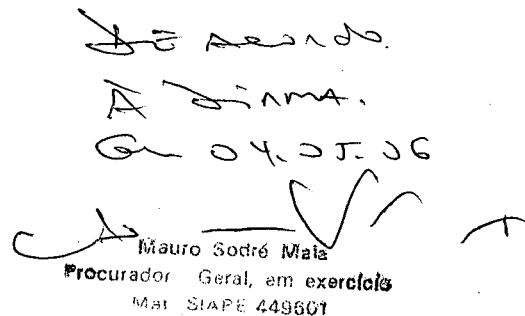 De acordo.
À DIRMA.
Em 04.05.06
Mauro Sodré Maia
Procurador Geral, em exercício
Mat SIAPE 449601